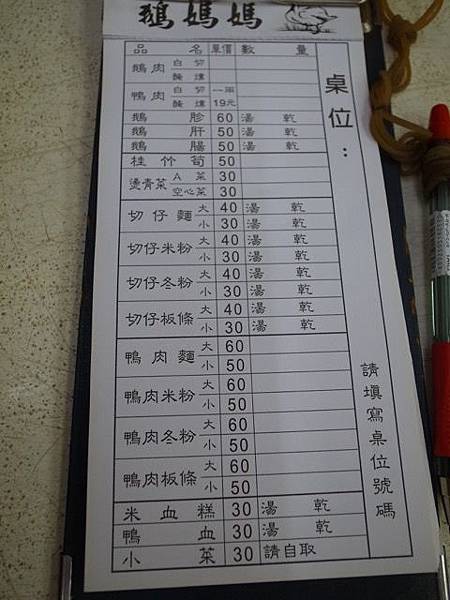 鵝媽媽
品名 單價 數量
鵝肉 白切
醃燻
鴨肉 白切 一兩
醃燻 19元
鵝胗 60 湯 乾
鵝肝 50 湯 乾
鵝腸 50 湯 乾
桂竹筍 50
燙青菜 A菜 30
空心菜 30
切仔麵 大 40 湯 乾
小 30 湯 乾
切仔米粉 大 40 湯 乾
小 30 湯 乾
切仔冬粉 大 40 湯 乾
小 30 湯 乾
切仔板條 大 40 湯 乾
小 30 湯 乾
鴨肉麵 大 60
小 50
鴨肉米粉 大 60
小 50
鴨肉冬粉 大 60
小 50
鴨肉板條 大 60
小 50
米血糕 30 湯 乾
鴨血 30 湯 乾
小菜 30 請自取
桌位：
請填寫桌位號碼